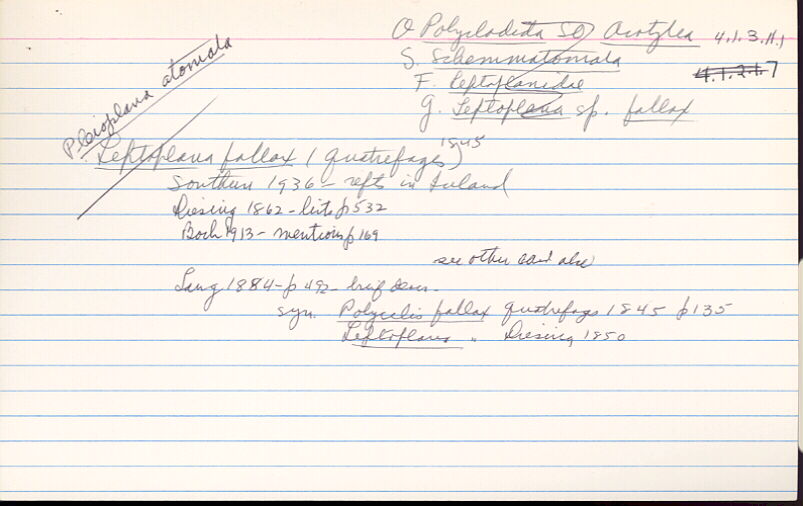 O Polycladida SO Acotylea 4.1.3.11.1
S. Schemmatomata 4.1.2.1.7
F. Leptoplanidae
G. Leptoplana sp. fallax
Pleioplana atomata
Leptoplana fallax (Quatrefages) 1845
Southern 1936 - repts in Ireland
Diesing 1862 - lists p 532
Bock 1913 - mentions p 169
see other card also
Lang 1884 - p 492 - brief descr.
syn. Polycelis fallax Quatrefages 1845 p 135
Leptoplana " Diesing 1850